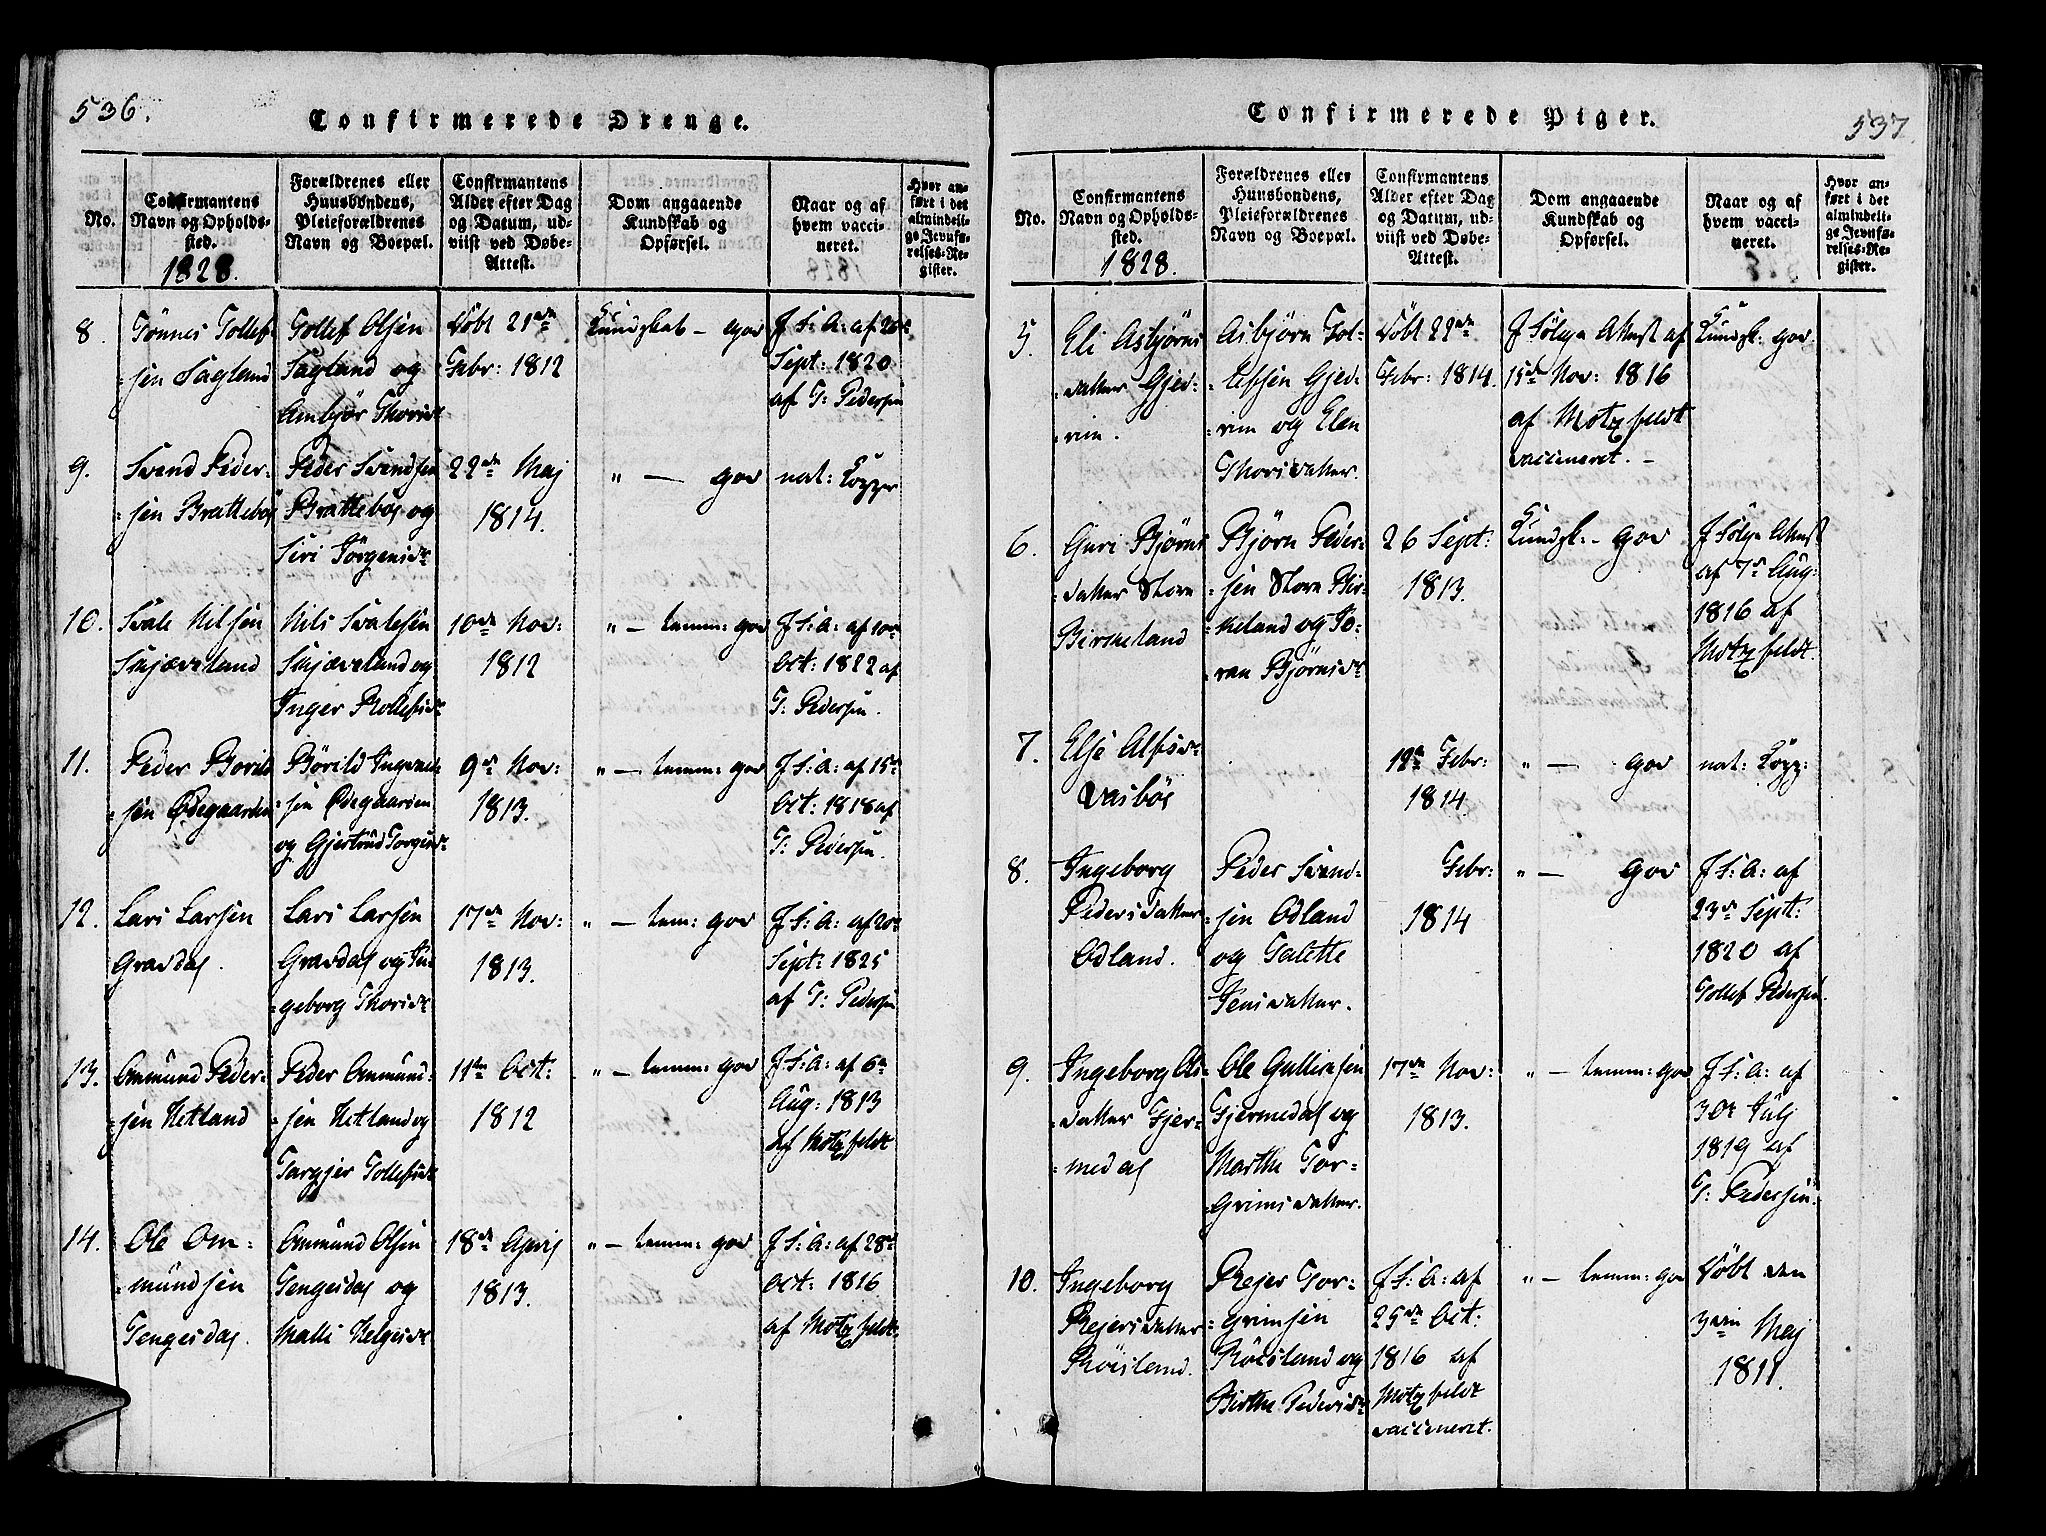 536.
Confirmerede Drenge.
No.
Confirmantens
Navn og Opholds-
sted.
1828.
Forældrenes eller
Huusbondens,
Pleieforældrenes
Navn og Boepæl.
Confirmantens
Alder efter Dag
og Datum, ud-
viist ved Døbe-
Attest.
Dom angaaende
Kundskab og
Opførsel.
Naar og af
hvem vacci-
neret.
Hvor an-
ført i det
almindeli-
ge Jevnfø-
relses-Re-
gister.
8.
Tönnes Tollef-
-sen Sagland
Tollef Olsen
Sagland og
Anbjör Thorisdr
döbt 21de
Febr: 1812
Kundskab - god
J S: A: af 20de
Sept: 1820
af T: Pedersen
9.
Svend Peder-
-sen Brattebös
Peder Svendsen
Brattebös og
Siri Jörgensdr
22de Maj
1814.
" — god
nat: Kopper
10.
Svale Nilsen
Skjæveland
Nils Svalesen
Skjæveland og
Inger Rollefsdr
10de Nov:
1812
" — temm: god
J S: A: af 10de
Oct: 1822 af
T: Pedersen.
11.
Peder Borild
-sen Ödegaarden
Börild Ingemel-
-sen Ödegaarden
og Gjertrud Torgersdr
9de Nov:
1813.
" — temm: god
J S: A: af 15de
Oct: 1818 af
T: Pedersen.
12.
Lars Larsen
Gravdal.
Lars Larsen
Gravdal og In-
-geborg Thorisdr
17de Nov:
1813.
" — tem: god
J S: A: af 20de
Sept: 1825
af T: Pedersen
13.
Ommund Peder-
-sen Hetland
Peder Ommund-
-sen Hetland og
Targjer Tollefsdr
11te Oct:
1812
" — temm: god
J S: A: af 6te
Aug: 1813
af Motzfeldt
14.
Ole Om-
-mundsen
Tengesdal.
Ommund Olsen
Tengesdal og
Malli Helgesdr
18de April
1813.
" — temm: god
J S: A: af 28de
Oct: 1816
af Motzfeldt.
537
Confirmerede Piger.
No.
Confirmantens
Navn og Opholds-
sted.
1828.
Forældrenes eller
Huusbondens,
Pleieforældrenes
Navn og Boepæl.
Confirmantens
Alder efter Dag
og Datum, ud-
viist ved Døbe-
Attest.
Dom angaaende
Kundskab og
Opførsel.
Naar og af
hvem vacci-
neret.
Hvor an-
ført i det
almindeli-
ge Jevnfø-
relses-Re-
gister.
5.
Eli Asbjörns
-datter Gjed-
-rem.
Asbjörn Tol-
-lefsen Gjed-
-rem og Elen
Thorisdatter.
döbt 22de
Febr: 1814.
J Fölge Attest af
15de Nov: 1816
af Motzfeldt
vaccineret. -
Kundsk: god
6.
Guri Björns
-datter Store
Birkeland
Björn Peder-
-sen Store Bir-
-keland og Jo-
-ran Björnsdr
26 Sept:
1813.
Kundsk: - god
J Fölge Attest
af 7de Aug:
1816 af
Motzfeldt.
7.
Else Alfsdr
Vasbös
12te Febr:
1814
" — god
nat: Kopp:
8.
Ingeborg
Pedersdatter
Odland.
Peder Svend-
-sen Odland
og Talette
Jensdatter.
Febr:
1814
" — god
J S: A: af
23de Sept:
1820 af
Tollef Pedersen.
9.
Ingeborg Ols-
-datter Fjer-
-medal
Ole Gulliksen
Fjermedal og
Marthe Tor-
-Grimsdatter.
17de Nov:
1813.
" — temm: god
J S: A: af
30te Julj
1819 af
T: Pedersen.
10.
Ingeborg
Rejersdatter
Röisland.
Rejer Tor-
-grimsen
Röisland og
Birthe Pedersdr
J S: A: af
25de Oct:
1816 af
Motzfeldt
vaccineret.
" — temm: god
döbt den
3die Maj
1811.